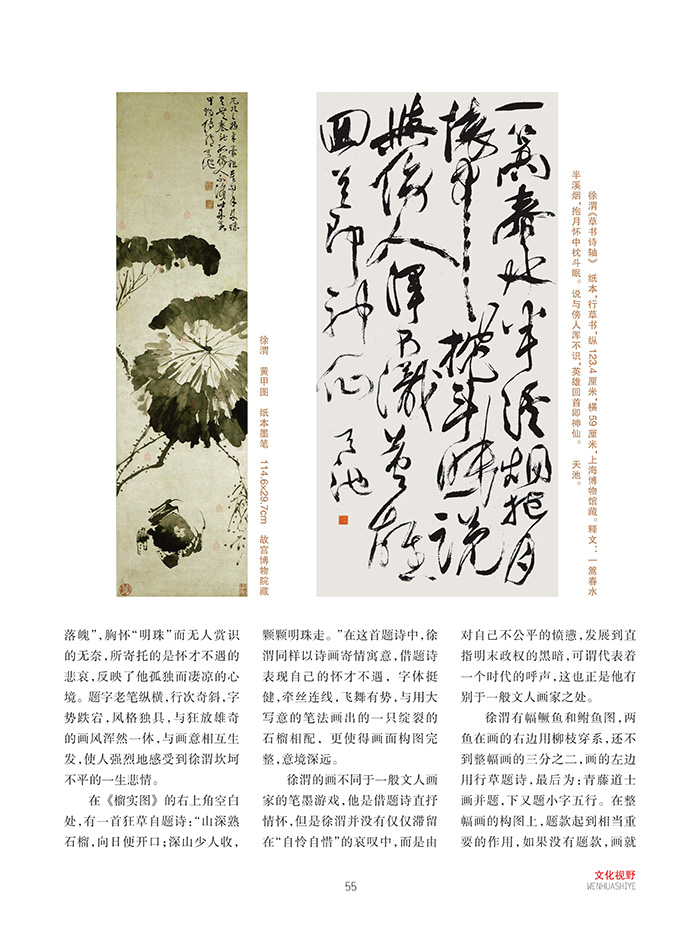 徐渭《草书诗轴》 纸本,行草书,纵 123.4 厘米,横 59 厘米,上海博物馆藏。释文:一篙春水
半溪烟,抱月怀中枕斗眠。说与傍人浑不识,英雄回首即神仙。 天池。
一篙春水半溪烟抱月
怀中枕斗眠说
与傍人浑不识英雄
回首即神仙 天池
徐渭 黄甲图 纸本墨笔 114.6×29.7cm 故宫博物院藏
落魄”,胸怀“明珠”而无人赏识
的无奈,所寄托的是怀才不遇的
悲哀,反映了他孤独而凄凉的心
境。题字老笔纵横,行次奇斜,字
势跌宕,风格独具,与狂放雄奇
的画风浑然一体,与画意相互生
发,使人强烈地感受到徐渭坎坷
不平的一生悲情。
在《榴实图》的右上角空白
处,有一首狂草自题诗:“山深熟
石榴,向日便开口;深山少人收,
颗颗明珠走。”在这首题诗中,徐
渭同样以诗画寄情寓意,借题诗
表现自己的怀才不遇，字体挺
健,牵丝连线,飞舞有势,与用大
写意的笔法画出的一只绽裂的
石榴相配，更使得画面构图完
整,意境深远。
徐渭的画不同于一般文人画
家的笔墨游戏,他是借题诗直抒
情怀,但是徐渭并没有仅仅滞留
在“自怜自惜”的哀叹中,而是由
对自己不公平的愤懑,发展到直
指明末政权的黑暗,可谓代表着
一个时代的呼声,这也正是他有
别于一般文人画家之处。
徐渭有幅鳜鱼和鲋鱼图,两
鱼在画的右边用柳枝穿系,还不
到整幅画的三分之二,画的左边
用行草题诗,最后为:青藤道士
画并题,下又题小字五行。在整
幅画的构图上,题款起到相当重
要的作用,如果没有题款,画就
55
文化视野
WENHUASHIYE